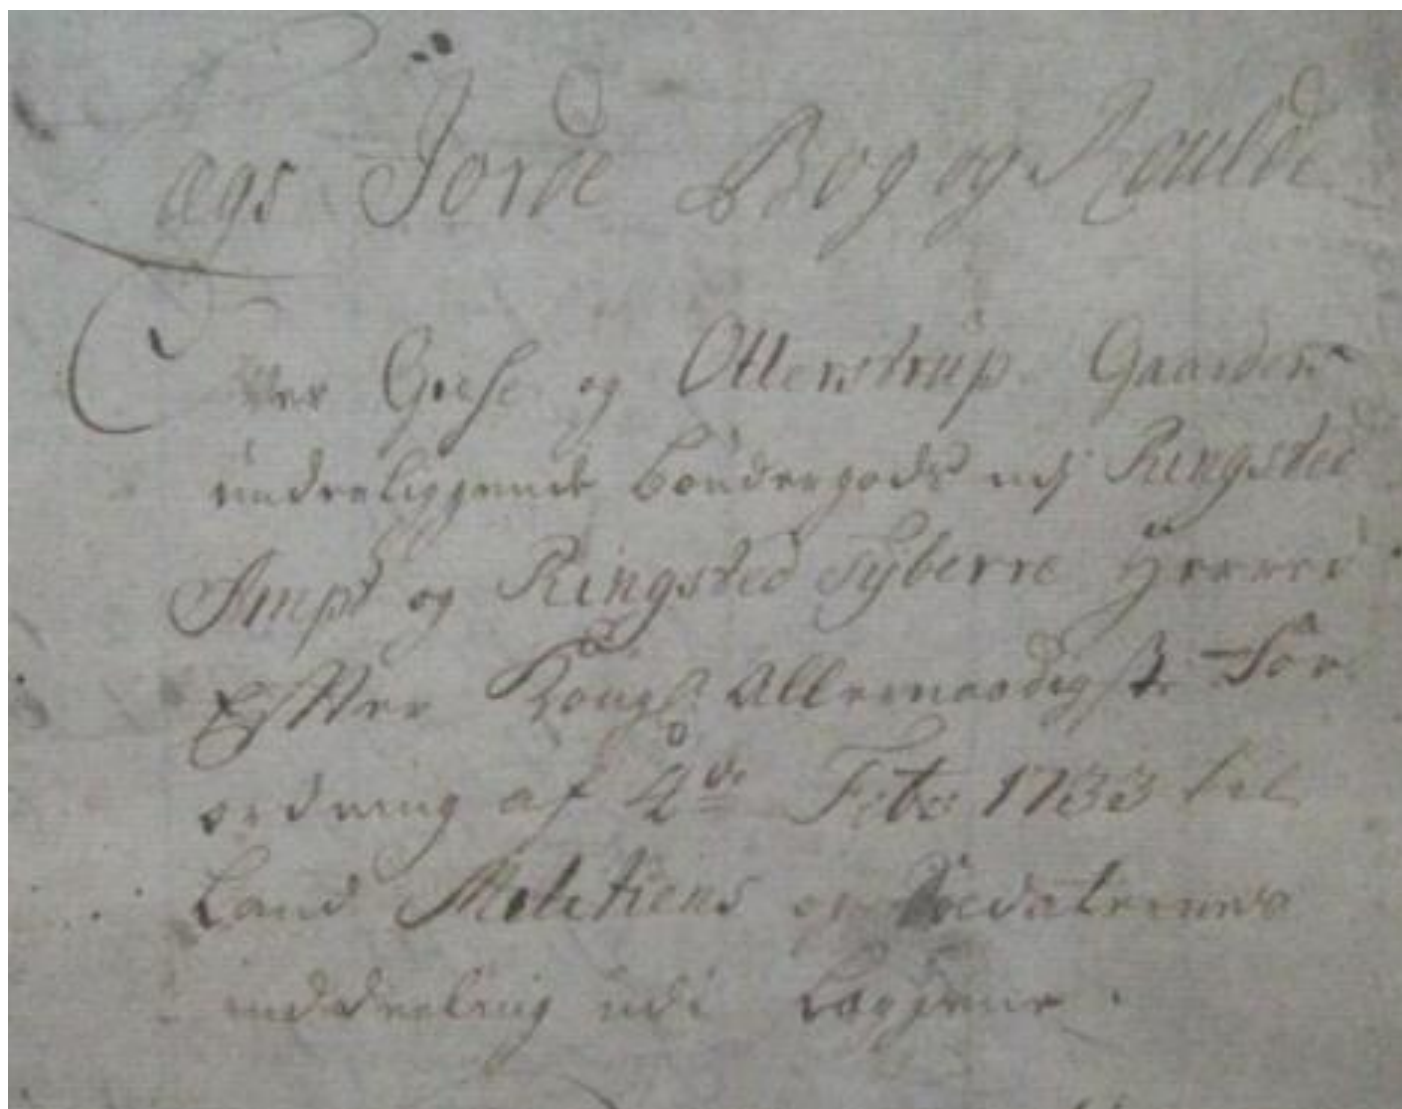 Lægs Jorde Bog og Roulle
Over Giese og Ottenstrup Gaarders
underliggende bøndergods udj Ringsted
Ampt og Ringsted Syberre Herret
Effter Kongl. Allernaadigste For
ordning af 4de Febr 1733 til
Land Militiens og
inddeeling udi Læggene.